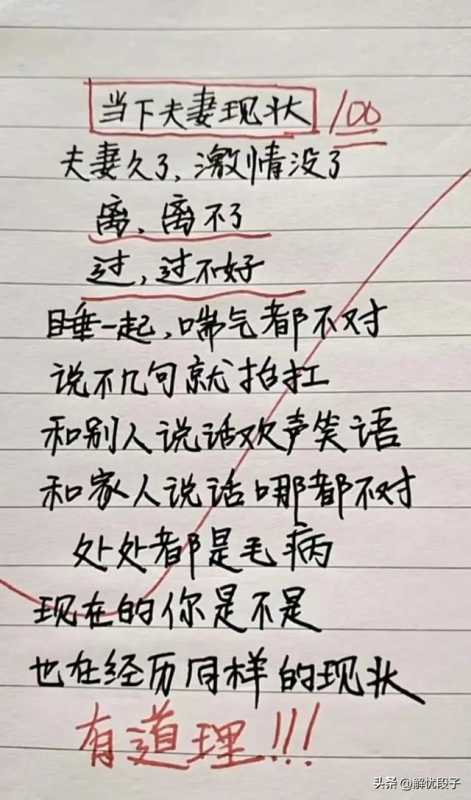 当下夫妻现状 100
夫妻久了,激情没了
离、离不了
过,过不好
睡一起,喘气都不对
说不几句就抬扛
和别人说话欢声笑语
和家人说话哪都不对
处处都是毛病
现在的你是不是
也在经历同样的现状
有道理!!!
头条 @解忧段子